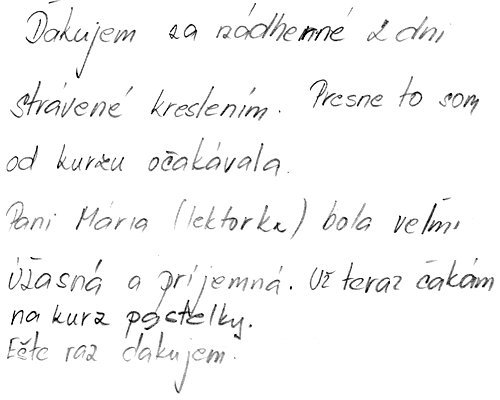 Ďakujem za nádherné 2 dni
strávené kreslením. Presne to som
od kurzu očakávala.
Pani Mária (lektorka) bola veľmi
úžasná a príjemná. Už teraz čakám
na kurz pastelky.
Ešte raz ďakujem.